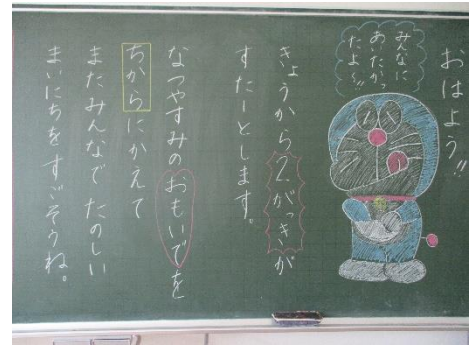 おはよう!!
みんなに
あいたかっ
たよ〜!!
きょうから2がっきが
すたーとします。
なつやすみのおもいでを
ちからにかえて
またみんなでたのしい
まいにちをすごそうね。